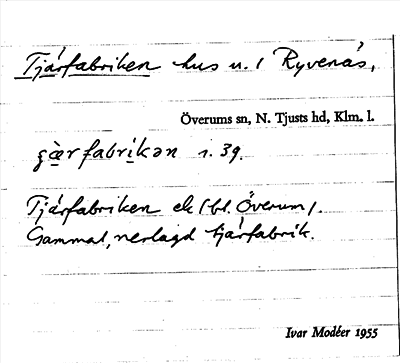 Tjärfabriken hus u. l Ryvenäs,
Överums sn, N. Tjusts hd, Klm. l.
fabrikən 1.39.
Tjärfabriken ek (bl. Överum).
Gammal, nerlagd tjärfabrik.
Ivar Modéer 1955